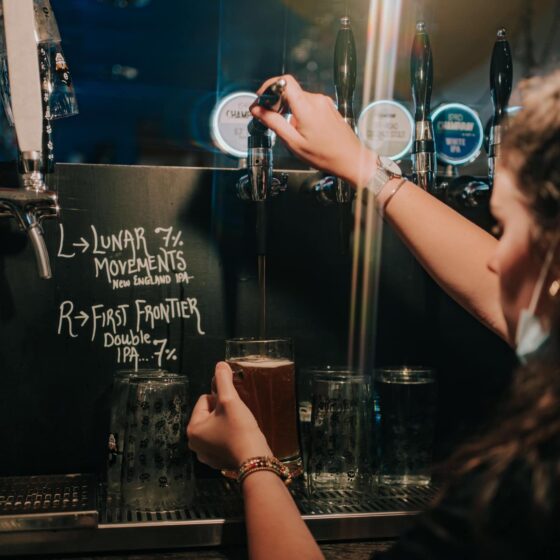 L→LUNAR 7%
MOVEMENTS
NEW ENGLAND IPA
R→FIRST FRONTIER
DOUBLE
IPA...7%
CHAM
CHAMPAN
WHITE IPA